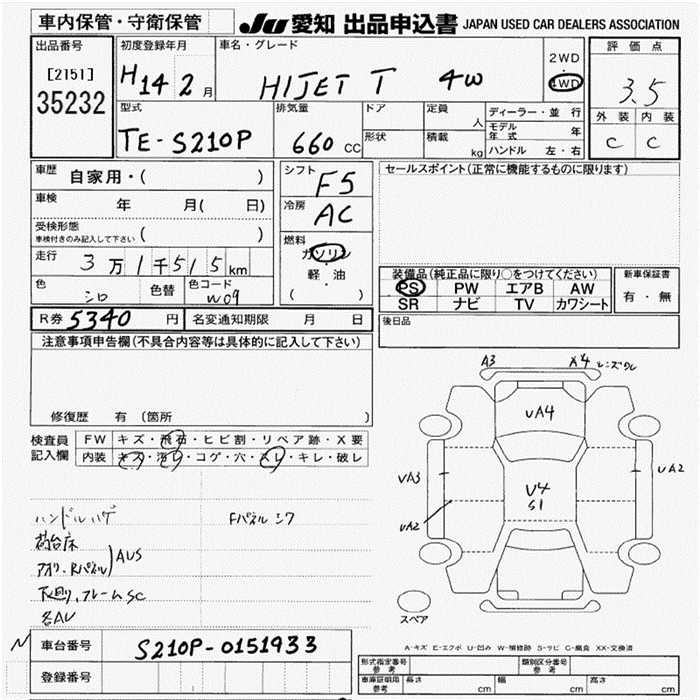 車内保管・守衛保管
JU 愛知 出品申込書 JAPAN USED CAR DEALERS ASSOCIATION
出品番号
[2151]
35232
初度登録年月
H14 2 月
車名・グレード
HIJET T 4W
2WD
4WD
評価点
3.5
外装 内装
C C
型式
TE-S210P
排気量
660 CC
ドア
形状
定員
人
積載
kg
ディーラー・並行
モデル年式 年
ハンドル 左・右
車歴 自家用・( )
車検 年 月( 日)
受検形態
車検付きのみ記入して下さい ( )
走行 3万1千515km
色 シロ
色替
色コード W09
シフト F5
冷房 AC
燃料
ガソリン
・
軽油
( )
セールスポイント(正常に機能するものに限ります)
装備品(純正品に限り○をつけてください)
PS PW エアB AW
SR ナビ TV カワシート
新車保証書
有・無
R券 5340 円
名変通知期限 月 日
後日品
注意事項申告欄(不具合内容等は具体的に記入して下さい)
修復歴 有 (箇所
検査員記入欄
FW キズ・飛石・ヒビ割・リペア跡・X要
内装 キズ・汚レ・コゲ・穴・スレ・キレ・破レ
ハンドルハゲ
Fパネルシワ
荷台床
アオリ、Rパネル) AUS
下廻り、フレームSC
各AU
A3
X4 レンズワレ
UA4
UA3
UA2
U4
S1
UA2
スペア
A-キズ E-エクボ U-凹み W-補修跡 S-サビ C-腐食 XX-交換済
N
車台番号 S210P-0151933
登録番号
型式指定番号 参考
類別区分番号 参考
車庫証明用 参考
長さ cm
幅 cm
高さ cm